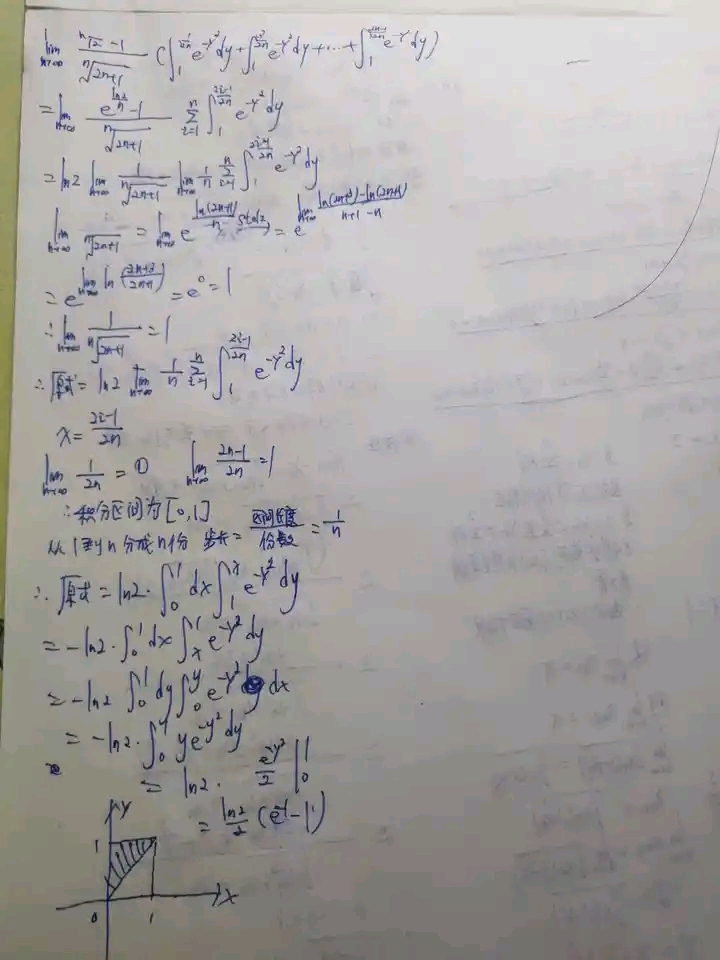 lim_{n→∞} \frac{\sqrt[n]{2}-1}{\sqrt[n]{2n+1}} (∫_1^{\frac{1}{2n}} e^{-y²}dy + ∫_1^{\frac{3}{2n}} e^{-y²}dy + ... + ∫_1^{\frac{2n-1}{2n}} e^{-y²}dy)
= lim_{n→∞} \frac{e^{\frac{ln2}{n}}-1}{\sqrt[n]{2n+1}} Σ_{i=1}^{n} ∫_1^{\frac{2i-1}{2n}} e^{-y²}dy
= ln2 lim_{n→∞} \frac{1}{\sqrt[n]{2n+1}} lim_{n→∞} \frac{1}{n} Σ_{i=1}^{n} ∫_1^{\frac{2i-1}{2n}} e^{-y²}dy
lim_{n→∞} \sqrt[n]{2n+1} = lim_{n→∞} e^{\frac{ln(2n+1)}{n}} \underline{\underline{stolz}} = e^{lim_{n→∞} \frac{ln(2n+3)-ln(2n+1)}{n+1-n}}
= e^{lim_{n→∞} ln(\frac{2n+3}{2n+1})} = e^0 = 1
∴ lim_{n→∞} \frac{1}{\sqrt[n]{2n+1}} = 1
∴ 原式 = ln2 lim_{n→∞} \frac{1}{n} Σ_{i=1}^{n} ∫_1^{\frac{2i-1}{2n}} e^{-y²}dy
x = \frac{2i-1}{2n}
lim_{n→∞} \frac{1}{2n} = 0 lim_{n→∞} \frac{2n-1}{2n} = 1
∴ 积分区间为[0,1]
从1到n分成n份 步长 = \frac{区间长度}{份数} = \frac{1}{n}
∴ 原式 = ln2·∫_0^1 dx ∫_1^x e^{-y²}dy
= -ln2·∫_0^1 dx ∫_x^1 e^{-y²}dy
= -ln2 ∫_0^1 dy ∫_0^y e^{-y²} dx
= -ln2·∫_0^1 ye^{-y²}dy
= ln2· \frac{e^{-y²}}{2} |_0^1
= \frac{ln2}{2} (e^{-1}-1)
y
1
0 1 x